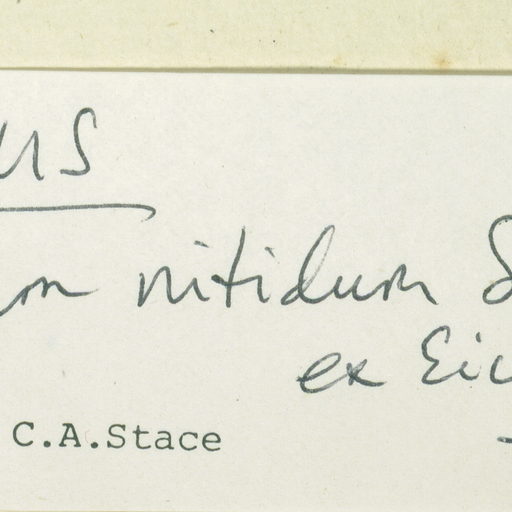 us
um nitidum S
ex Eic
C.A.Stace